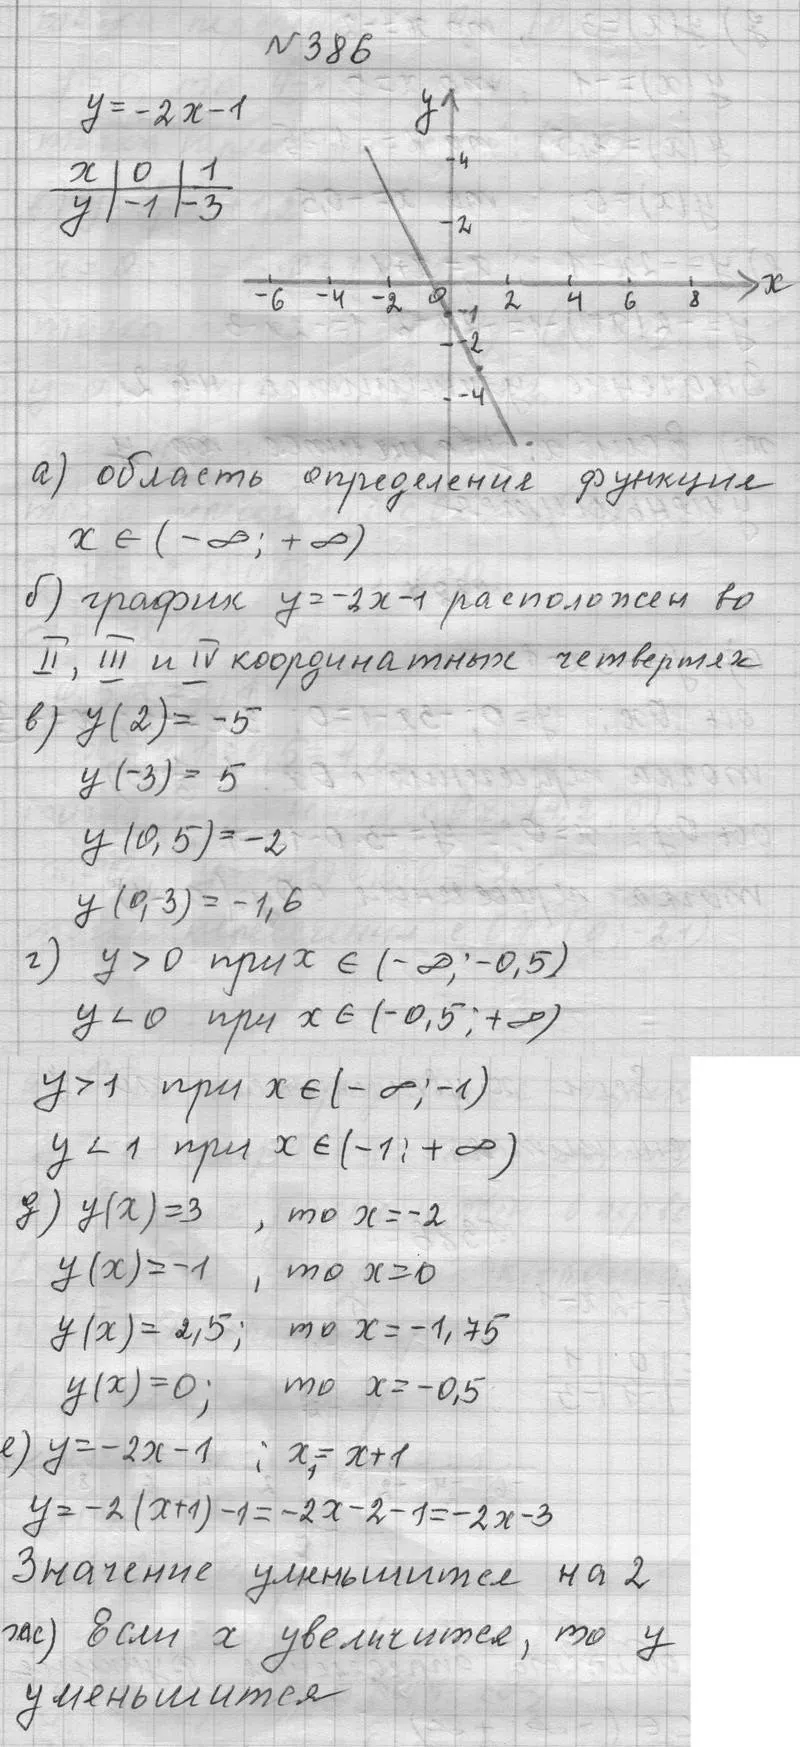 №386
y = -2x-1
x | 0 | 1
y | -1 | -3
y
4
2
-6 -4 -2 0 2 4 6 8 x
-1
-2
-4
а) область определения функция
x ∈ (-∞; +∞)
б) график y = -2x-1 расположен во
II, III и IV координатных четвертях
в) y(2) = -5
y(-3) = 5
y(0,5) = -2
y(0,3) = -1,6
г) y > 0 при x ∈ (-∞; -0,5)
y < 0 при x ∈ (-0,5; +∞)
y > 1 при x ∈ (-∞; -1)
y < 1 при x ∈ (-1; +∞)
д) y(x) = 3 , то x = -2
y(x) = -1 , то x = 0
y(x) = 2,5; то x = -1,75
y(x) = 0; то x = -0,5
е) y = -2x-1 ; x₁ = x+1
y = -2(x+1)-1 = -2x-2-1 = -2x-3
Значение уменьшится на 2
ж) Если x увеличится, то y
уменьшится